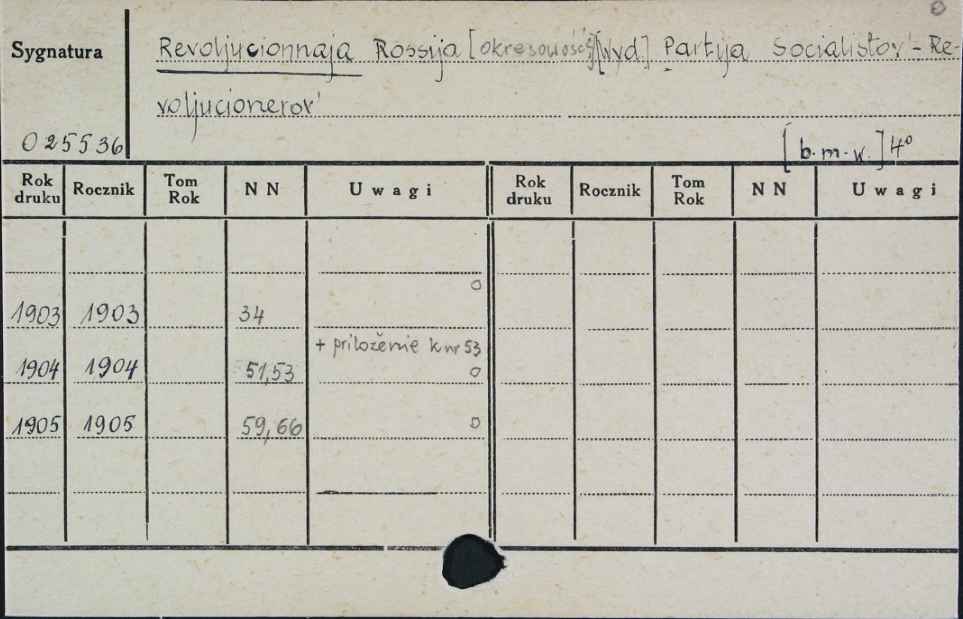 Sygnatura
Revoljucionnaja Rossija [okresowość] [Wyd.] Partija Socialistov'-Re-
voljucionerov'
025536
[b.m.w.] 4°
Rok druku Rocznik Tom Rok NN Uwagi Rok druku Rocznik Tom Rok NN Uwagi
1903 1903 34 o
+ priloženie k nr 53
1904 1904 51,53 o
1905 1905 59,66 o